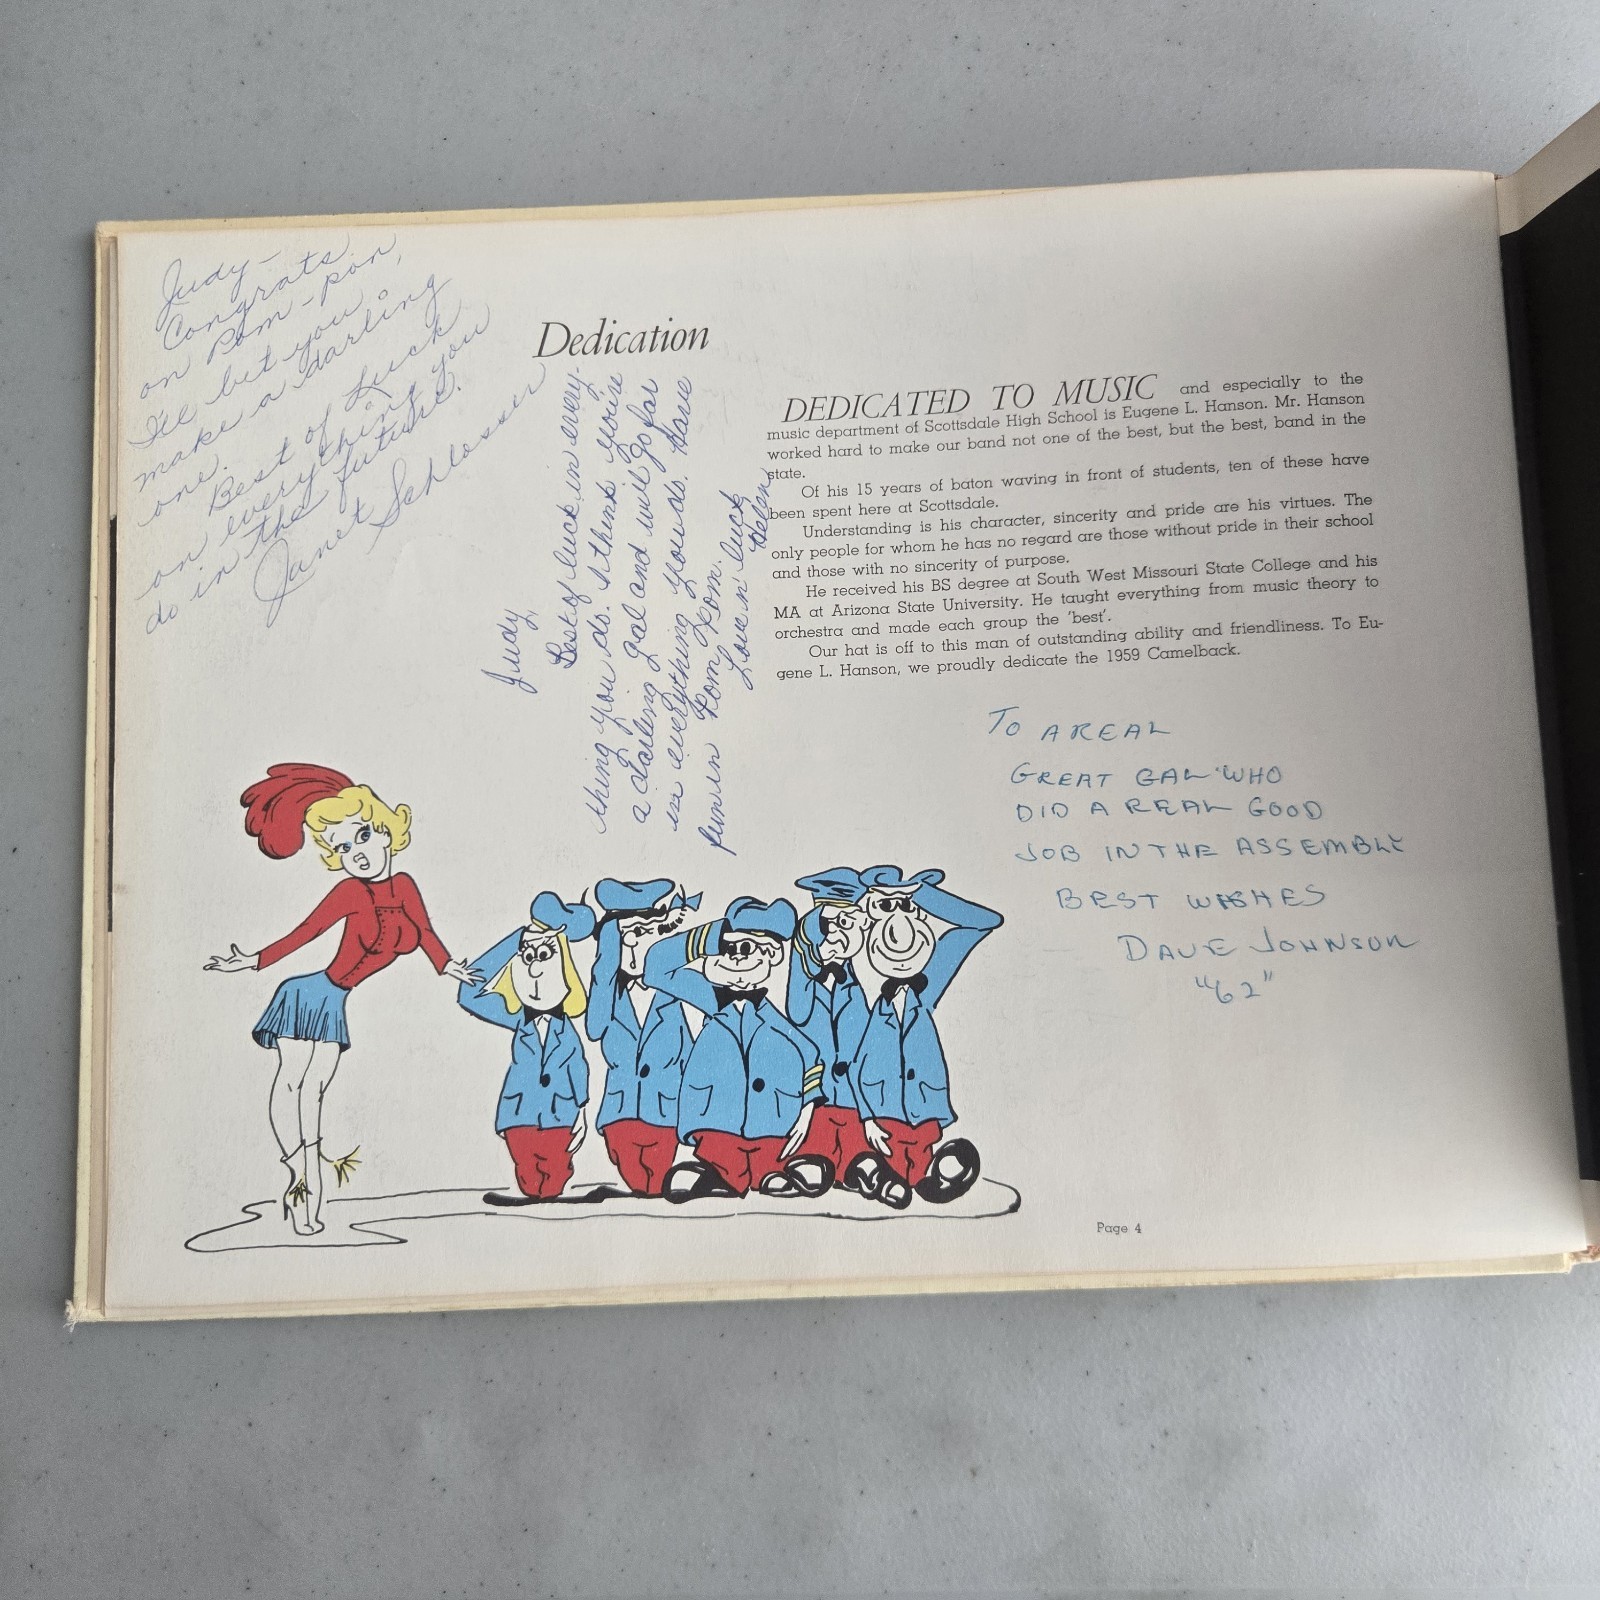 Judy -
Congrats
on Pom-pon,
I'll bet you
make a darling
one.
Best of Luck
on everything you
do in the future.
Janet Schlosser
Dedication
Judy,
Best of luck in every-
thing you do. I think you're
a darling gal and will go far
in everything you do. Have
fun in Pom Pom.
Love n' luck
Helen
DEDICATED TO MUSIC and especially to the
music department of Scottsdale High School is Eugene L. Hanson. Mr. Hanson
worked hard to make our band not one of the best, but the best, band in the
state.
Of his 15 years of baton waving in front of students, ten of these have
been spent here at Scottsdale.
Understanding is his character, sincerity and pride are his virtues. The
only people for whom he has no regard are those without pride in their school
and those with no sincerity of purpose.
He received his BS degree at South West Missouri State College and his
MA at Arizona State University. He taught everything from music theory to
orchestra and made each group the 'best'.
Our hat is off to this man of outstanding ability and friendliness. To Eu-
gene L. Hanson, we proudly dedicate the 1959 Camelback.
TO A REAL
GREAT GAL WHO
DID A REAL GOOD
JOB IN THE ASSEMBLE
BEST WISHES
DAVE JOHNSON
"62"
Page 4